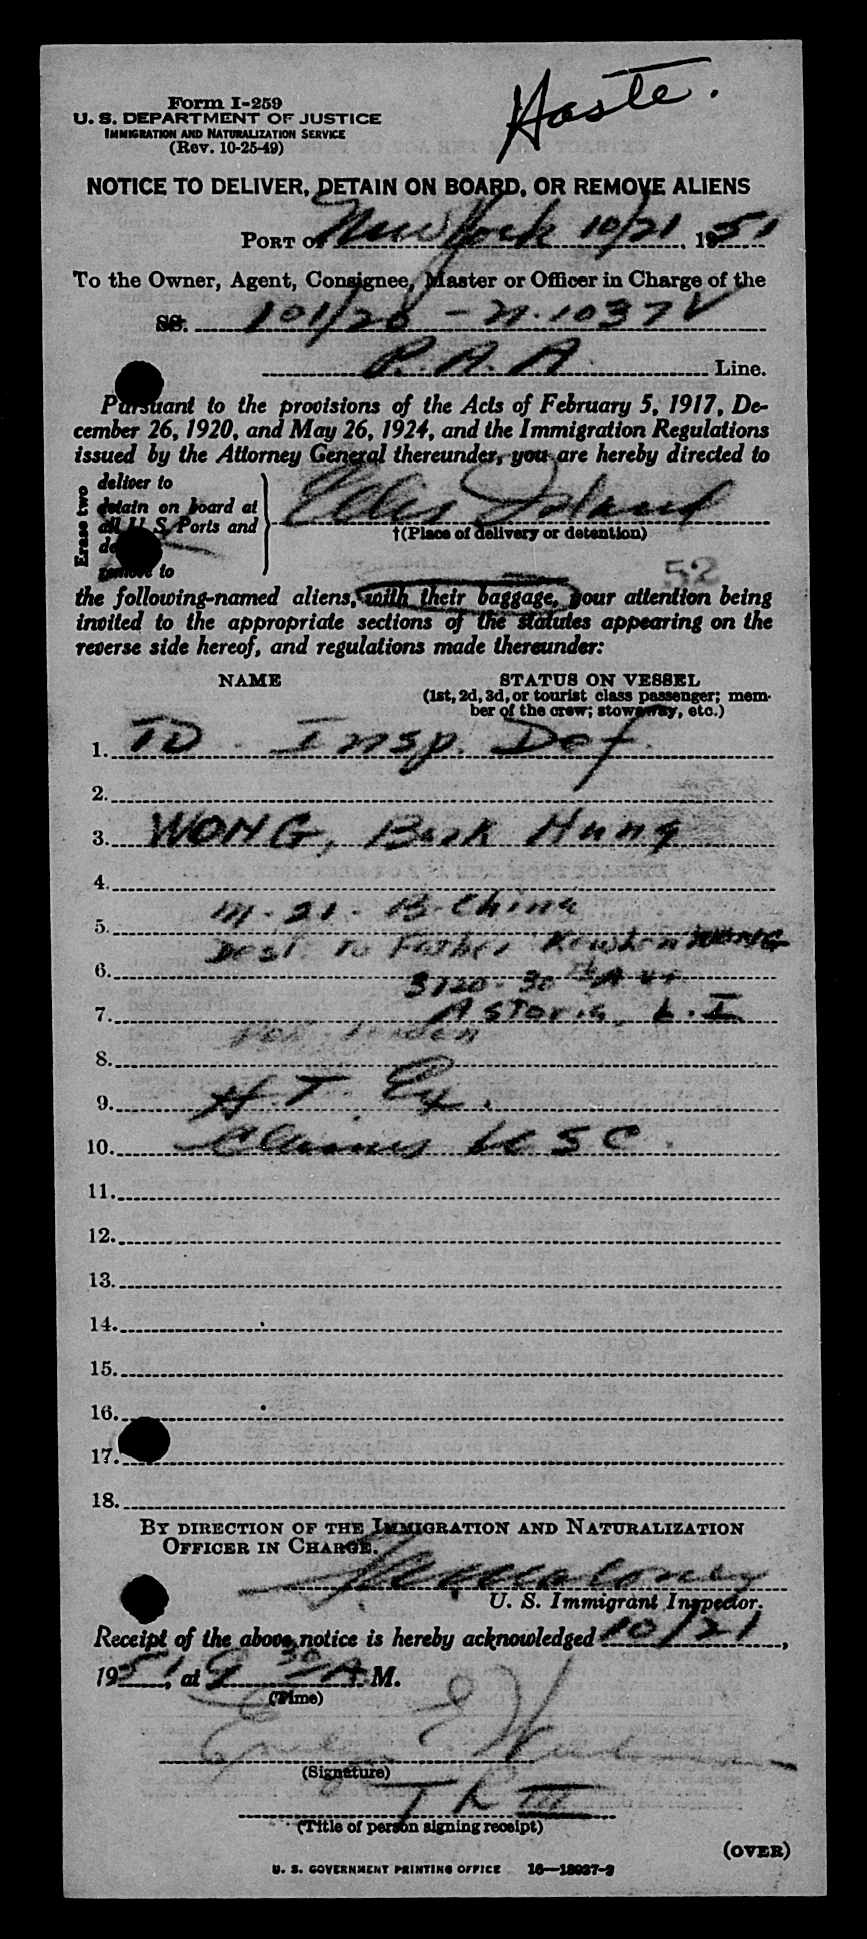 Haste.
Form I-259
U. S. DEPARTMENT OF JUSTICE
IMMIGRATION AND NATURALIZATION SERVICE
(Rev. 10-25-49)
NOTICE TO DELIVER, DETAIN ON BOARD, OR REMOVE ALIENS
PORT OF New York 10/21, 1951
To the Owner, Agent, Consignee, Master or Officer in Charge of the
SS. 101/20 - N.1037V
P. A. A. Line.
Pursuant to the provisions of the Acts of February 5, 1917, De-
cember 26, 1920, and May 26, 1924, and the Immigration Regulations
issued by the Attorney General thereunder, you are hereby directed to
Erase two
deliver to
detain on board at
all U. S. Ports and
remove to
Ellis Island
†(Place of delivery or detention)
52
the following-named aliens, with their baggage, your attention being
invited to the appropriate sections of the statutes appearing on the
reverse side hereof, and regulations made thereunder:
NAME STATUS ON VESSEL
(1st, 2d, 3d, or tourist class passenger; mem-
ber of the crew; stowaway, etc.)
1. TD. Insp. Def.
2.
3. WONG, Bark Hung
4.
5. M-21-B-China
6. Dest. to Father WONG
7. 3120-30th Ave
Astoria, L.I.
8.
9. H.T. Ex.
10. Claims USC.
11.
12.
13.
14.
15.
16.
17.
18.
BY DIRECTION OF THE IMMIGRATION AND NATURALIZATION
OFFICER IN CHARGE.
Maloney
U. S. Immigrant Inspector.
Receipt of the above notice is hereby acknowledged 10/21,
1951, at 9 30 A M.
(Time)
(Signature)
(Title of person signing receipt)
(OVER)
U. S. GOVERNMENT PRINTING OFFICE 16—13937-2